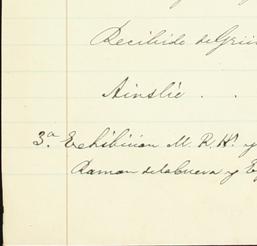 Recibido de Grii
Ainslie . .
3.ª Echibicion M. R. Hº y
Ramon de la Cueva y E